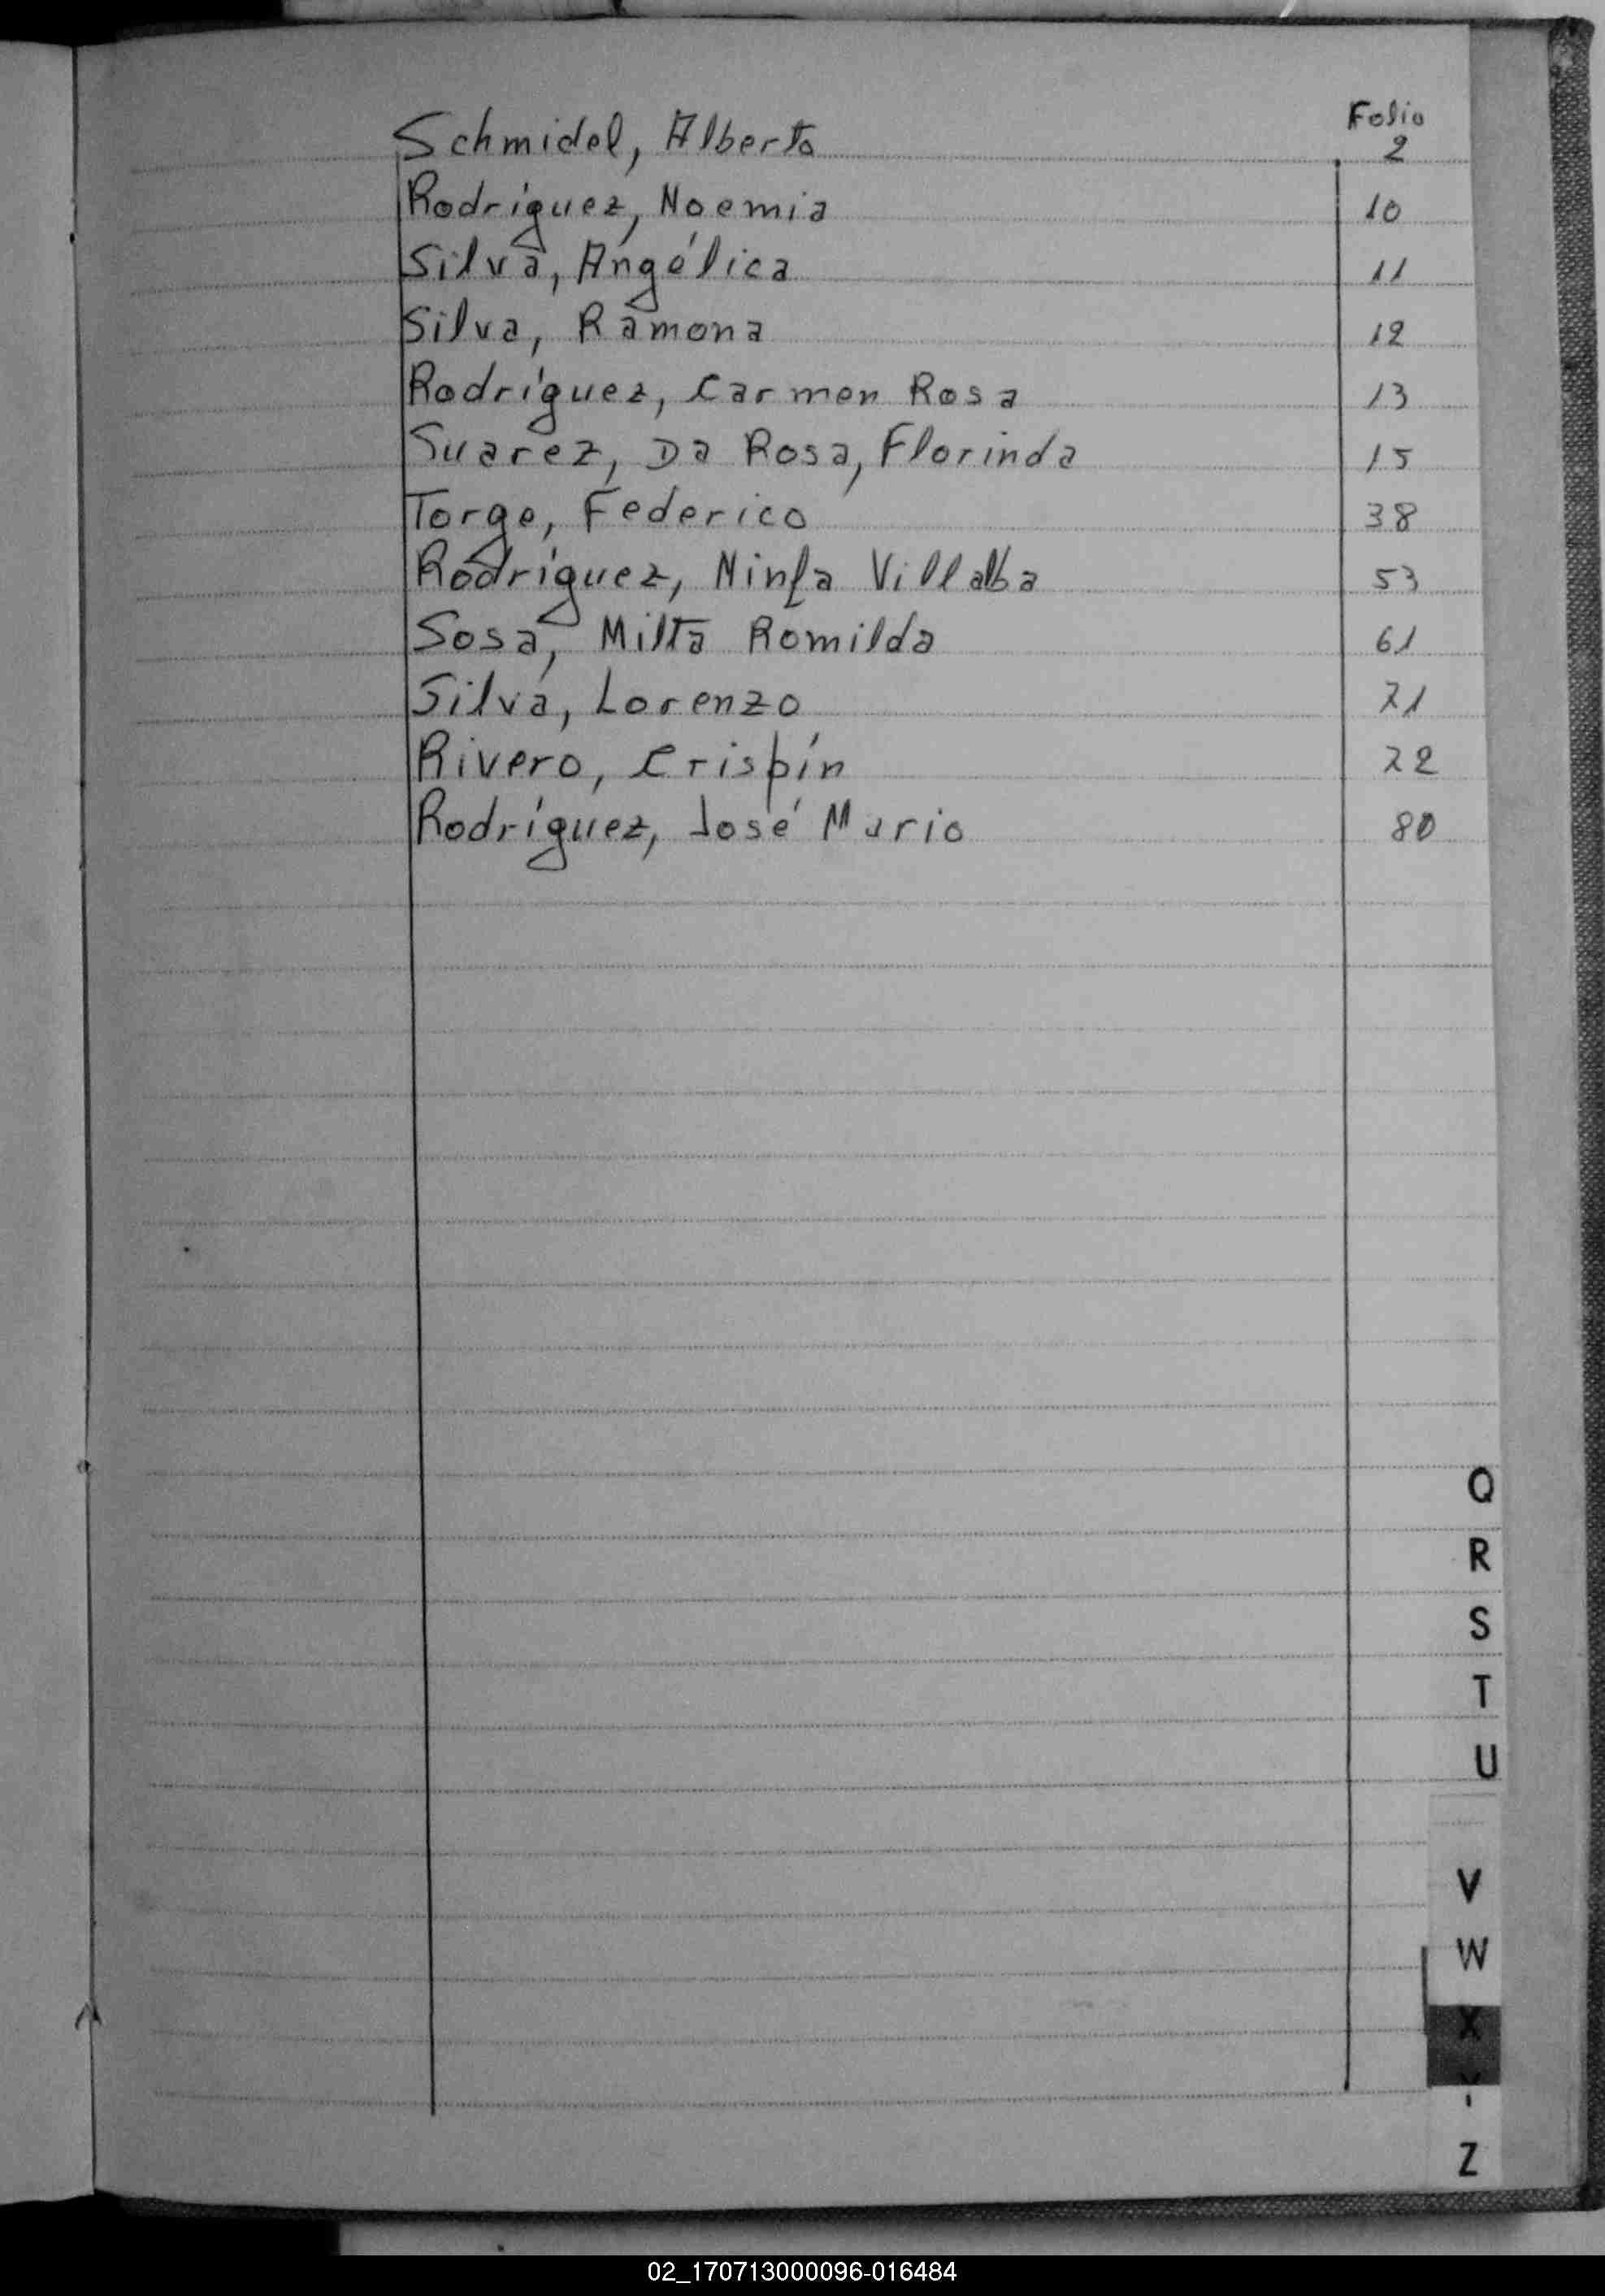 Folio
Schmidel, Alberto 2
Rodríguez, Noemia 10
Silva, Angélica 11
Silva, Ramona 12
Rodríguez, Carmen Rosa 13
Suarez, Da Rosa, Florinda 15
Torge, Federico 38
Rodríguez, Ninfa Villalba 53
Sosa, Milta Romilda 61
Silva, Lorenzo 71
Rivero, Crispín 72
Rodríguez, José Mario 80
Q
R
S
T
U
V
W
X
Y
Z
02_170713000096-016484